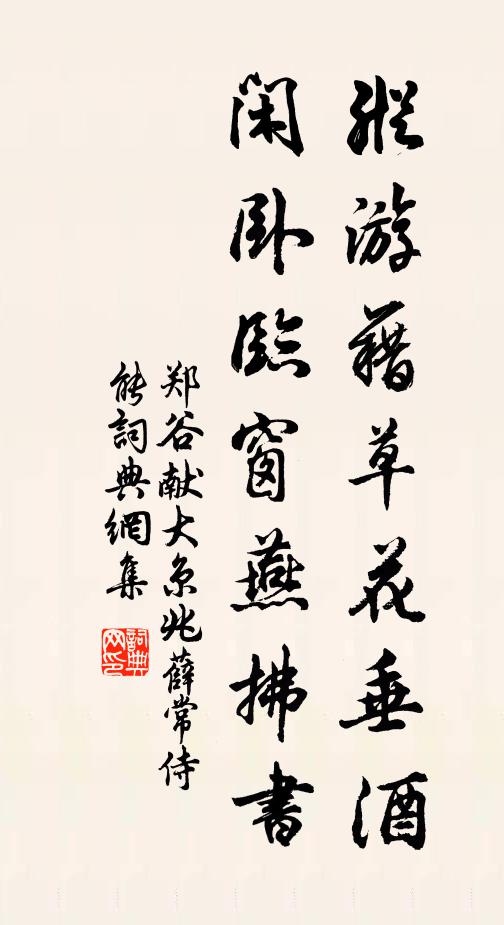 縱游藉草花垂酒
閑臥臨窗燕拂書
郑谷献大京兆薛常侍
能詞典網集
詞典网印